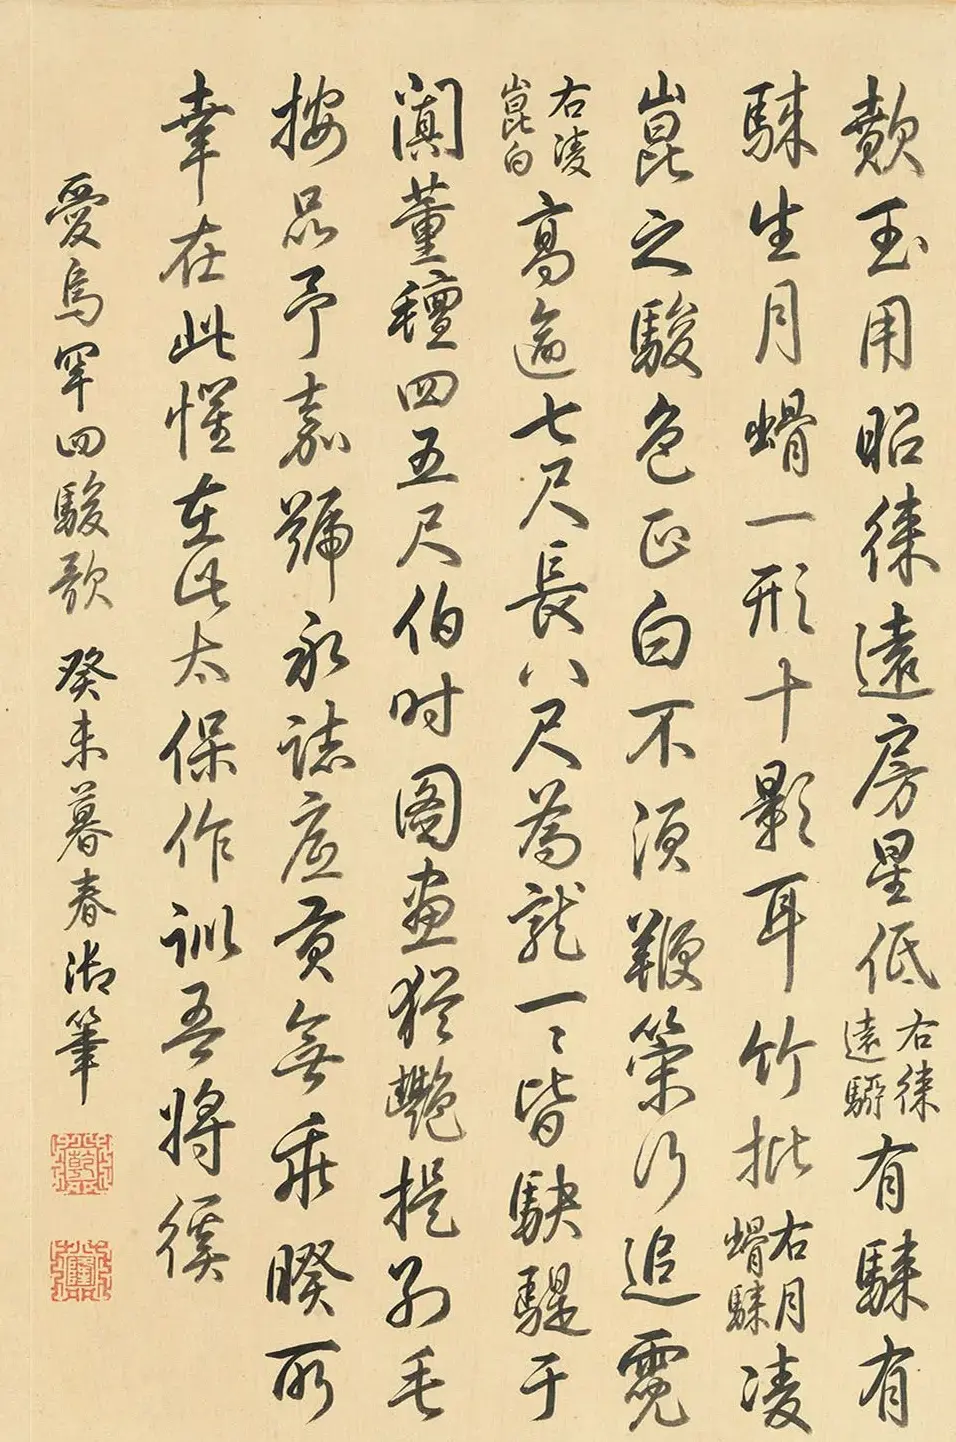 歕玉用昭徠遠房星低右徠遠騮有騋有
騋生月一形十影耳竹批右月騋凌
崑之駿色正白不須鞭策行追霓
右凌崑白高逾七尺長八尺為龍一〻皆駃騠于
闐董氊四五尺伯时圖畫猶艷提別毛
按品予嘉號永誌底貢無乖暌所
幸在此懼在此太保作訓吾將徯
愛烏罕四駿歌 癸未暮春御筆
乾
隆